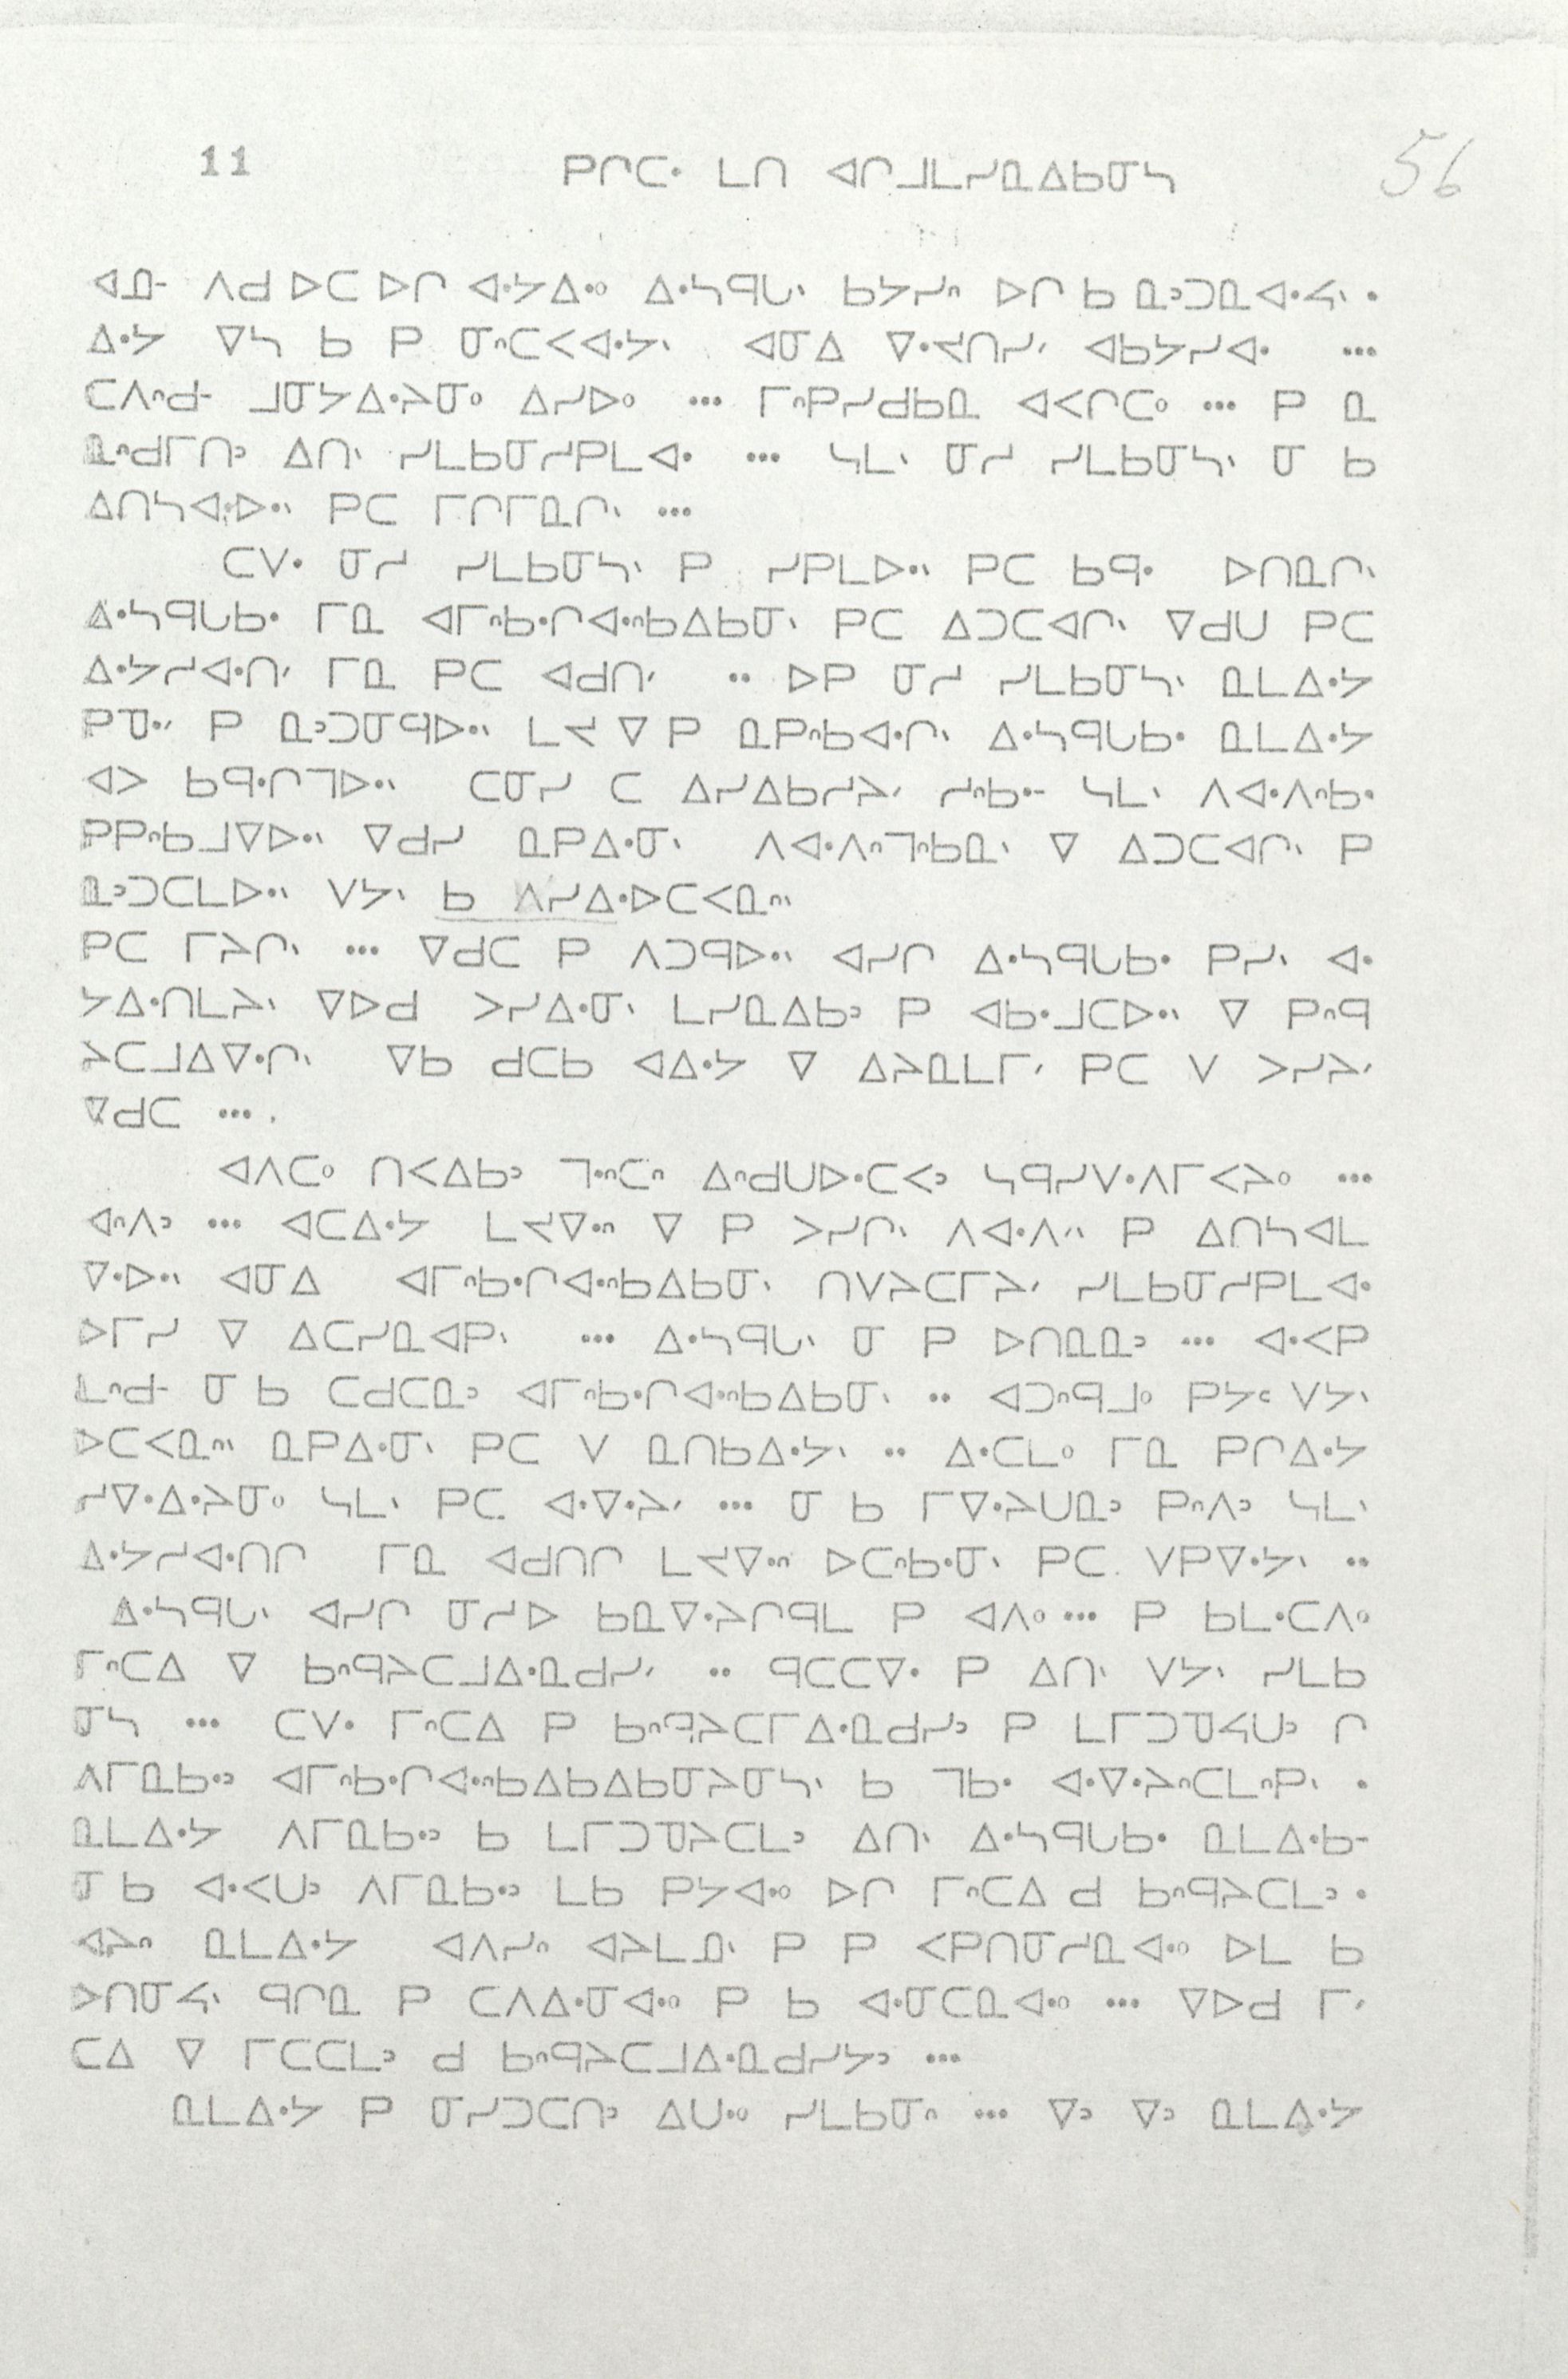 11 ᑭᒋᑕᐧ ᒪᑎ ᐊᒋᒧᒪᓯᓇᐃᑲᓂᓴ 56
ᐊᓄᐨ ᐱᑯ ᐅᑕ ᐅᒋ ᐊᐧᔭᐃᐧᐤ ᐃᐧᓴᑫᒐᐠ ᑲᔭᓯᐣ ᐅᒋ ᑲ ᓇᐣᑐᓇᐊᐧᔦᐠ ᐧ
ᐃᐧᔭ ᐁᓴ ᑲ ᑭ ᓂᐢᑕᐸᐊᐧᔭᐠ ᐊᓂᐃ ᐁᐧᔪᑎᓯᐟ ᐊᑲᔭᓯᐊᐧ ...
ᑕᐱᐢᑯᐨ ᒧᓂᔭᐃᐧᔨᓂᐤ ᐃᓯᐅᐤ ... ᒥᐢᑭᓯᑯᑲᓇ ᐊᐸᒋᑕᐤ ... ᑭ ᓇ
ᓇᐢᑯᒥᑎᐣ ᐃᑎᐠ ᓯᒪᑲᓂᓯᑭᒪᐊᐧ ... ᓴᒪᐠ ᓂᓯ ᓯᒪᑲᓂᓴᐠ ᓂ ᑲ
ᐃᑎᓴᐊᐧᐅᐧᐠ ᑭᑕ ᒥᒋᒥᓇᒋᐠ ...
ᑕᐯᐧ ᓂᓯ ᓯᒪᑲᓂᓴᐠ ᑭ ᓯᑭᒪᐅᐧᐠ ᑭᑕ ᑲᑫᐧ ᐅᑎᓇᒋᐠ
ᐃᐧᓴᑫᒐᑲᐧ ᒥᓇ ᐊᒥᐢᑲᐧᒋᐊᐧᐢᑲᐃᑲᓂᐠ ᑭᑕ ᐃᑐᑕᐊᒋᐠ ᐁᑯᑌ ᑭᑕ
ᐃᐧᔭᓯᐊᐧᑎᐟ ᒥᓇ ᑭᑕ ᐊᑯᑎᐟ .. ᐅᑭ ᓂᓯ ᓯᒪᑲᓂᓴᐠ ᓇᒪᐃᐧᔭ
ᑭᓄᐧᐟ ᑭ ᓇᐣᑐᓇᑫᐅᐧᐠ ᒪᔪ ᐁ ᑭ ᓇᑭᐢᑲᐊᐧᒋᐠ ᐃᐧᓴᑫᒐᑲᐧ ᓇᒪᐃᐧᔭ
ᐊᐳ ᑲᑫᐧᒋᒣᐅᐧᐠ ᑕᓂᓯ ᑕ ᐃᓯᐃᑲᓯᔨᐟ ᓯᐢᑲᐧᐨ ᓴᒪᐠ ᐱᐊᐧᐱᐢᑲᐧ
ᑭᑭᐢᑲᒧᐁᐅᐧᐠ ᐁᑯᓯ ᓇᑭᐃᐧᓂᐠ ᐱᐊᐧᐱᐢᒣᐢᑲᓇᐠ ᐁ ᐃᑐᑕᐊᒋᐠ ᑭ
ᓇᐣᑐᑕᒪᐅᐧᐠ ᐯᔭᐠ ᑲ ᐱᓯᐃᐧᐅᑕᐸᓇᐢᐠ
ᑭᑕ ᒥᔨᒋᐠ ... ᐁᑯᑕ ᑭ ᐱᑐᑫᐅᐧᐠ ᐊᓯᒋ ᐃᐧᓴᑫᒐᑲᐧ ᑭᓯᐠ ᐊᐧ
ᔭᐃᐧᑎᒪᔨᐠ ᐁᐅᑯ ᐳᓯᐃᐧᓂᐠ ᒪᓯᓇᐃᑲᐣ ᑭ ᐊᑲᐧᒧᑕᐅᐧᐠ ᐁ ᑭᐢᑫ
ᔨᑕᒧᐃᐁᐧᒋᐠ ᐁᑲ ᑯᑕᑲ ᐊᐃᐧᔭ ᐁ ᐃᔨᓇᒪᒥᐟ ᑭᑕ ᐯ ᐳᓯᔨᐟ
ᐁᑯᑕ ... .
ᐊᐱᑕᐤ ᑎᐸᐃᑲᐣ ᒣᐧᐢᑕᐢ ᐃᐢᑯᑌᐅᐧᑕᐸᐣ ᓴᑫᓯᐯᐧᐱᒥᐸᔨᐤ ...
ᐊᐢᐱᐣ ... ᐊᑕᐃᐧᔭ ᒪᔪᐁᐧᐢ ᐁ ᑭ ᐳᓯᒋᐠ ᐱᐊᐧᐱᐢᐠ ᑭ ᐃᑎᓴᐊᒪ
ᐁᐧᐅᐧᐠ ᐊᓂᐃ ᐊᒥᐢᑲᐧᒋᐊᐧᐢᑲᐃᑲᓂᐠ ᑎᐯᔨᑕᒥᔨᐟ ᓯᒪᑲᓂᓯᑭᒪᐊᐧ
ᐅᒥᓯ ᐁ ᐃᑕᓯᓇᐊᑭᐠ ... ᐃᐧᓴᑫᒐᐠ ᓂ ᑭ ᐅᑎᓇᓇᐣ ... ᐊᐧᐸᑭ
ᒪᐢᑯᐨ ᓂ ᑲ ᑕᑯᑕᓇᐣ ᐊᒥᐢᑲᐧᒋᐊᐧᐢᑲᐃᑲᓂᐠ .. ᐊᑐᐢᑫᒧᐤ ᑭᔭᑦ ᐯᔭᐠ
ᐅᑕᐸᓇᐢᐠ ᓇᑭᐃᐧᓂᐠ ᑭᑕ ᐯ ᓇᑎᑲᐃᐧᔭᐠ .. ᐃᐧᑕᒪᐤ ᒥᓇ ᑭᒋᐃᐧᔭ
ᓯᐁᐧᐃᐧᔨᓂᐤ ᓴᒪᐠ ᑭᑕ ᐊᐧᐁᐧᔨᐟ ... ᓂ ᑲ ᒥᐁᐧᔨᑌᓇᐣ ᑭᐢᐱᐣ ᓴᒪᐠ
ᐃᐧᔭᓯᐊᐧᑎᒋ ᒥᓇ ᐊᑯᑎᒋ ᒪᔪᐁᐧᐢ ᐅᑕᐢᑲᐧᓂᐠ ᑭᑕ ᐯᑭᐁᐧᔭᐠ ..
ᐃᐧᓴᑫᒐᐠ ᐊᓯᒋ ᓂᓯᐅ ᑲᓇᐁᐧᔨᒋᑫᒪ ᑭ ᐊᐱᐤ ... ᑭ ᑲᒪᐧᑕᐱᐤ
ᒥᐢᑕᐃ ᐁ ᑲᐢᑫᔨᑕᒧᐃᐧᓇᑯᓯᐟ .. ᑫᑕᑕᐁᐧ ᑭ ᐃᑎᐠ ᐯᔭᐠ ᓯᒪᑲ
ᓂᓴ ... ᑕᐯᐧ ᒥᐢᑕᐃ ᑭ ᑲᐢᑫᔨᑕᒥᐃᐧᓇᑯᓯᐣ ᑭ ᒪᒥᑐᓀᔦᑌᐣ ᒋ
ᐱᒥᓇᑲᐧᐣ ᐊᒥᐢᑲᐧᒋᐊᐧᐢᑲᐃᑲᐃᑲᓂᔨᓂᓴᐠ ᑲ ᒣᑲᐧ ᐊᐧᐁᐧᔨᐢᑕᒪᐢᑭᐠ ᐧ
ᓇᒪᐃᐧᔭ ᐱᒥᓇᑲᐧᐣ ᑲ ᒪᒥᑐᓀᔨᑕᒪᐣ ᐃᑎᐠ ᐃᐧᓴᑫᒐᑲᐧ ᓇᒪᐃᐧᑲᐨ
ᓂ ᑲ ᐊᐧᐸᑌᐣ ᐱᒥᓇᑲᐧᐣ ᒪᑲ ᑭᔭᐊᐧᐤ ᐅᒋ ᒥᐢᑕᐃ ᑯ ᑲᐢᑫᔨᑕᒪᐣ ᐧ
ᐊᔨᐢ ᓇᒪᐃᐧᔭ ᐊᐱᓯᐢ ᐊᔨᒪᓄᐠ ᑭ ᑭ ᐸᑭᑎᓂᓯᓇᐊᐧᐤ ᐅᒪ ᑲ
ᐅᑎᓂᔦᐠ ᑫᒋᓇ ᑭ ᑕᐱᐃᐧᓂᐊᐧᐤ ᑭ ᑲ ᐊᐧᓂᑕᓇᐊᐧᐤ ... ᐁᐅᑯ ᒥᐟ
ᑕᐃ ᐁ ᒥᑕᑕᒪᐣ ᑯ ᑲᐢᑫᔨᑕᒧᐃᐧᓇᑯᓯᔭᐣ ...
ᓇᒪᐃᐧᔭ ᑭ ᓂᓯᑐᑕᑎᐣ ᐃᑌᐧᐤ ᓯᒪᑲᓂᐢ ... ᐁᐣ ᐁᐣ ᓇᒪᐃᐧᔭ